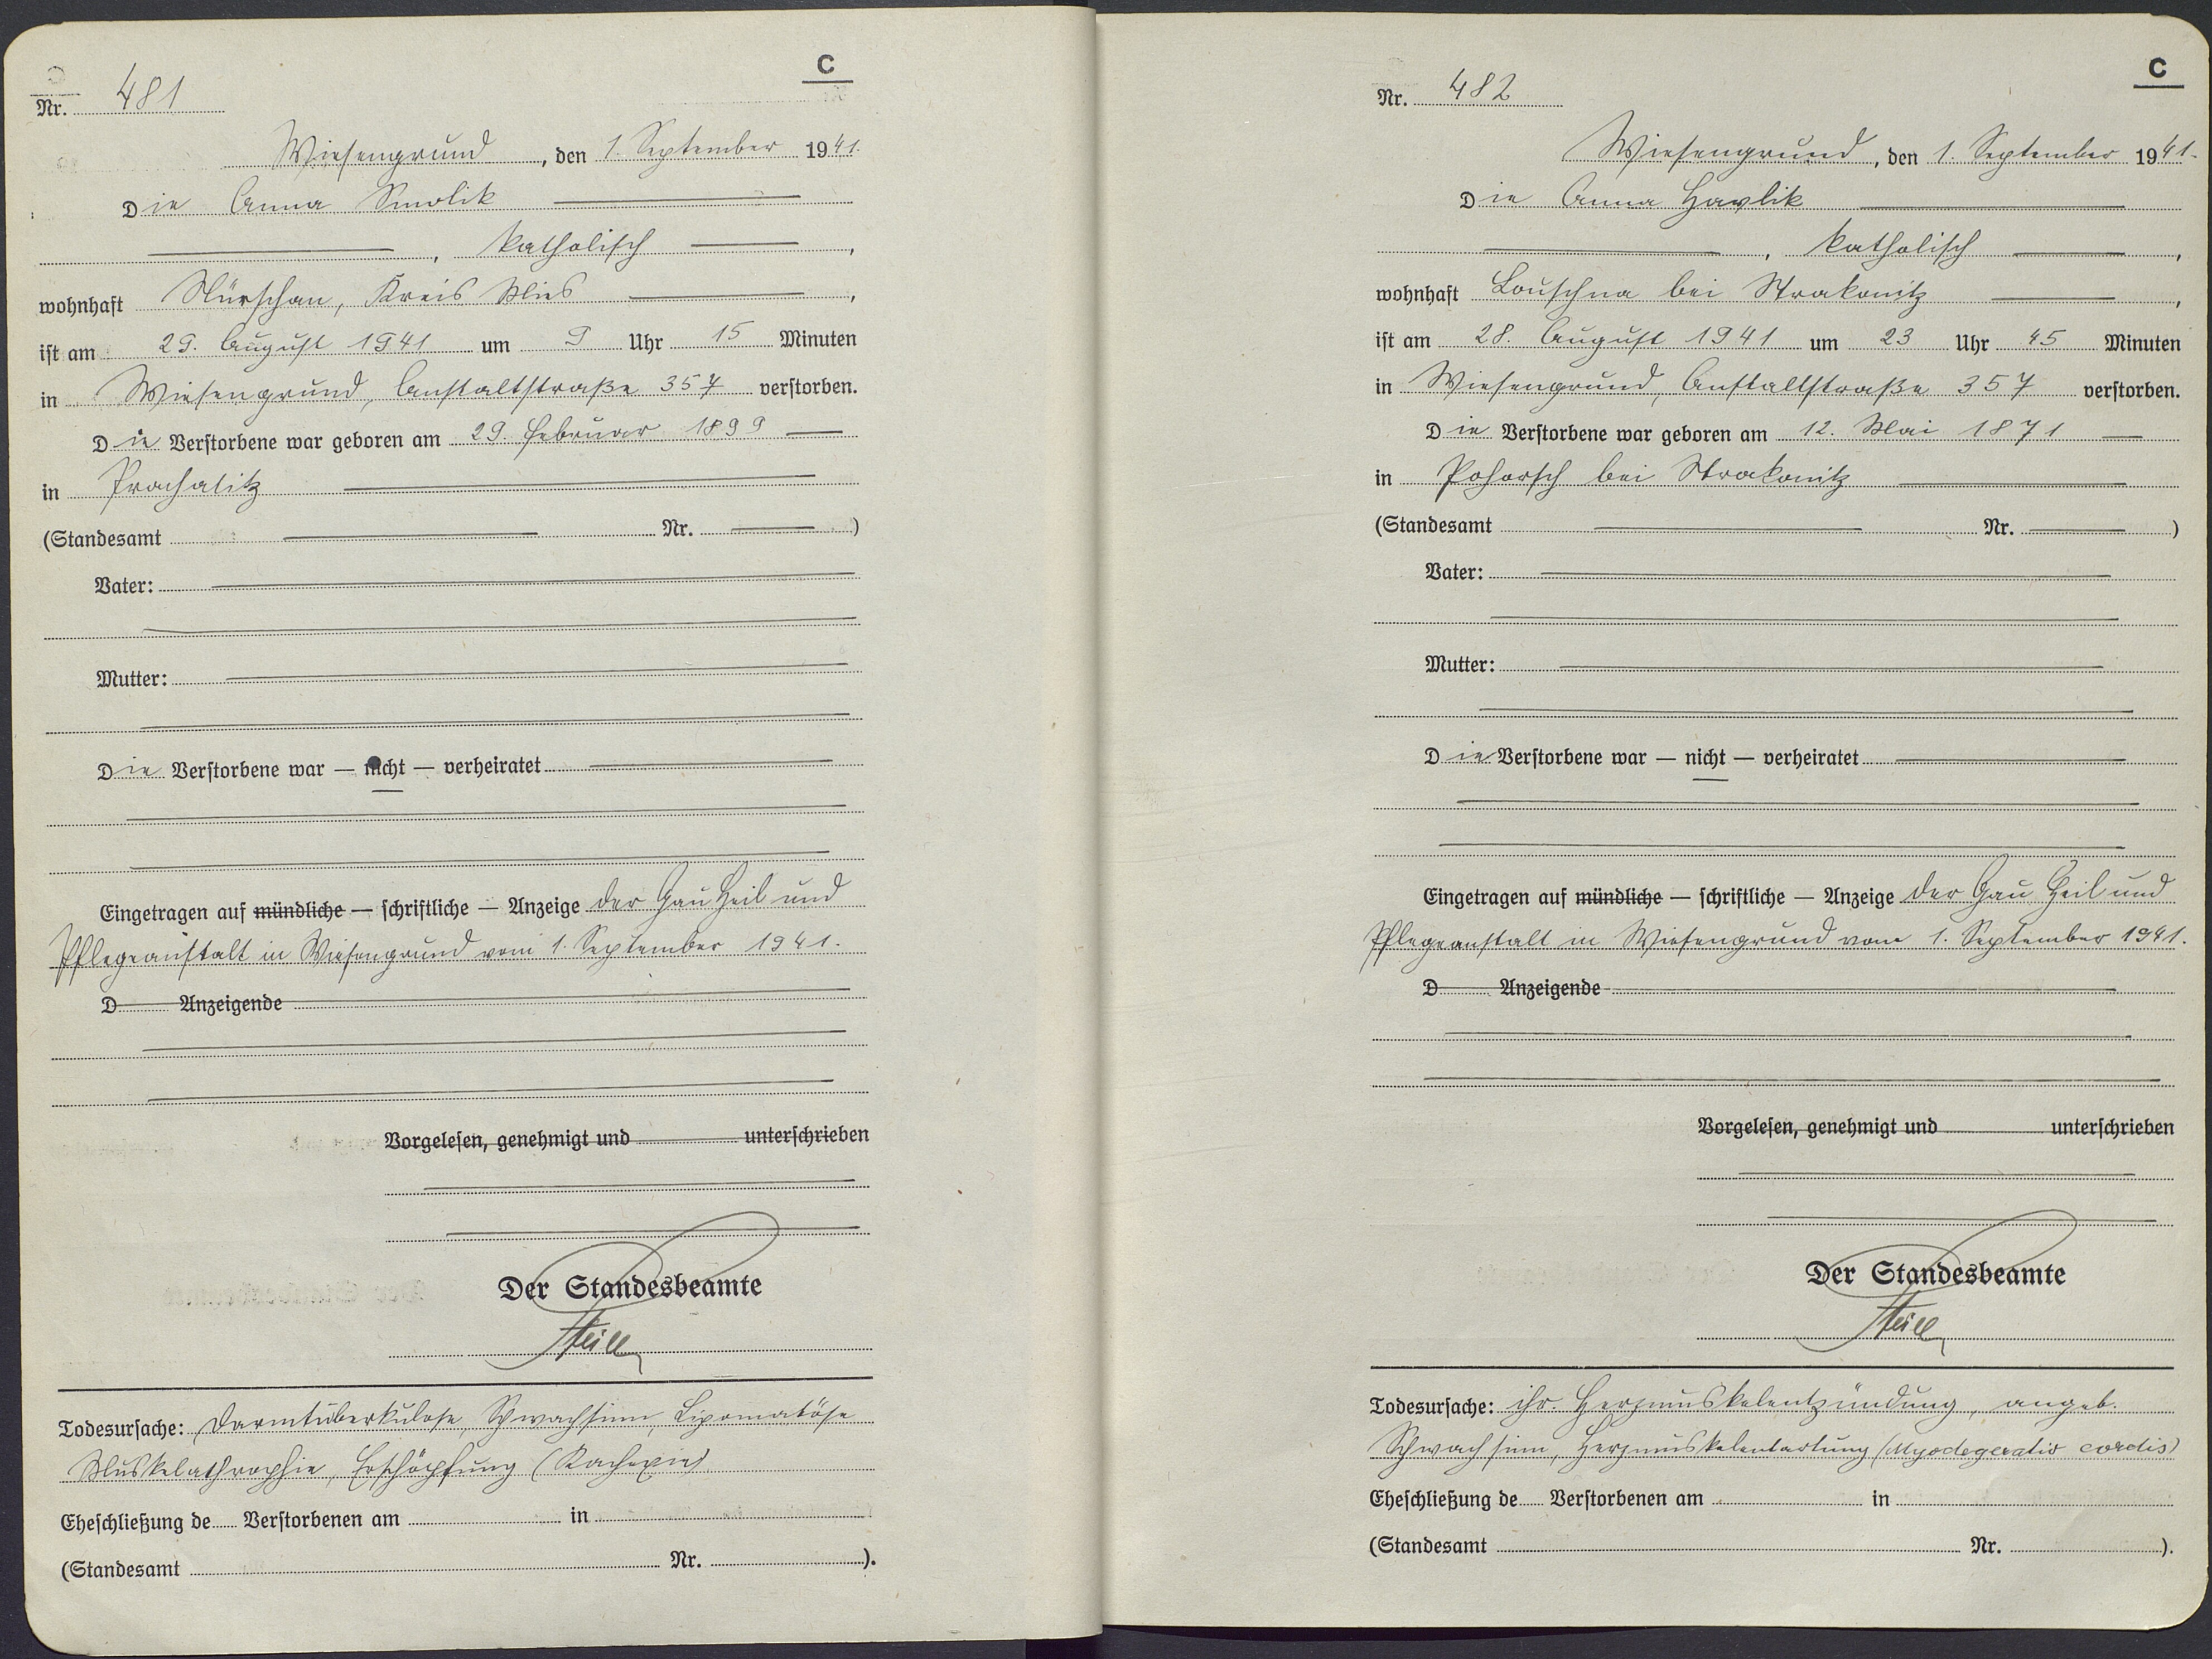 C
Nr. 481
Wiesengrund, den 1. September 1941.
Die Anna Smolik
, katholisch,
wohnhaft Nürschan, Kreis Mies,
ist am 29. August 1941 um 9 Uhr 15 Minuten
in Wiesengrund, Anstaltstraße 357 verstorben.
Die Verstorbene war geboren am 29. Februar 1899
in Prachatitz
(Standesamt Nr. )
Vater:
Mutter:
Die Verstorbene war — nicht — verheiratet
Eingetragen auf mündliche — schriftliche — Anzeige der Gau Heil und
Pflegeanstalt in Wiesengrund vom 1. September 1941.
D Anzeigende
Vorgelesen, genehmigt und unterschrieben
Der Standesbeamte
Todesursache: Darmtuberkulose, Schwachsinn, Lipomatöse
Muskelathrophie, Erschöpfung (Kachexie)
Eheschließung de Verstorbenen am in
(Standesamt Nr. ).
C
Nr. 482
Wiesengrund, den 1. September 1941.
Die Anna Havlik
, katholisch,
wohnhaft Louschna bei Strakonitz,
ist am 28. August 1941 um 23 Uhr 45 Minuten
in Wiesengrund, Anstaltstraße 357 verstorben.
Die Verstorbene war geboren am 12. Mai 1871
in Pohorsch bei Strakonitz
(Standesamt Nr. )
Vater:
Mutter:
Die Verstorbene war — nicht — verheiratet
Eingetragen auf mündliche — schriftliche — Anzeige der Gau Heil und
Pflegeanstalt in Wiesengrund vom 1. September 1941.
D Anzeigende
Vorgelesen, genehmigt und unterschrieben
Der Standesbeamte
Todesursache: Herzmuskelentzündung, angeb.
Schwachsinn, Herzmuskelentartung (Myodegeratio cordis)
Eheschließung de Verstorbenen am in
(Standesamt Nr. ).